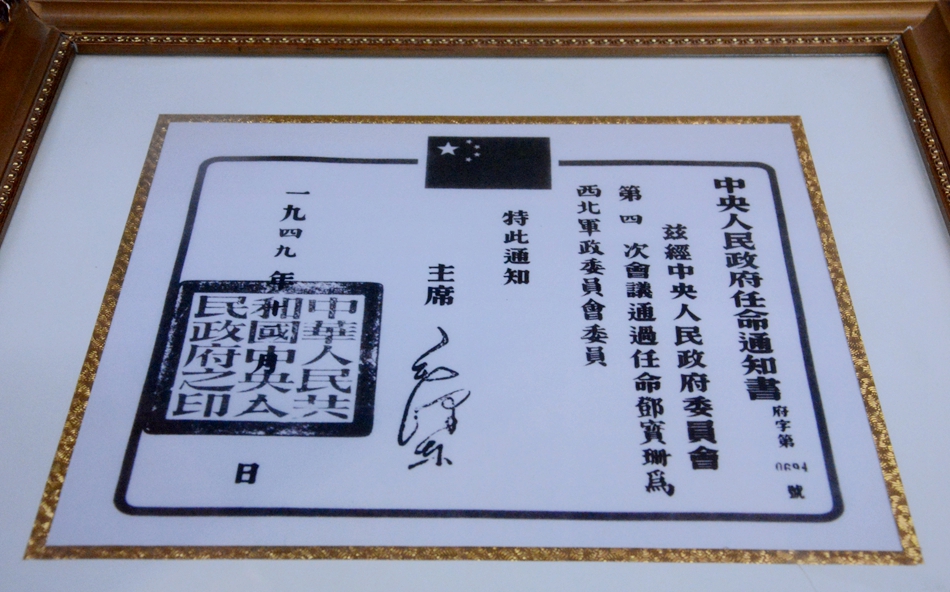 中央人民政府任命通知書
府字第0694號
茲經中央人民政府委員會
第四次會議通過任命鄧寳珊爲
西北軍政委員會委員
特此通知
主席 毛澤東
一九四九年 月 日
中華人民共
和國中央人
民政府之印